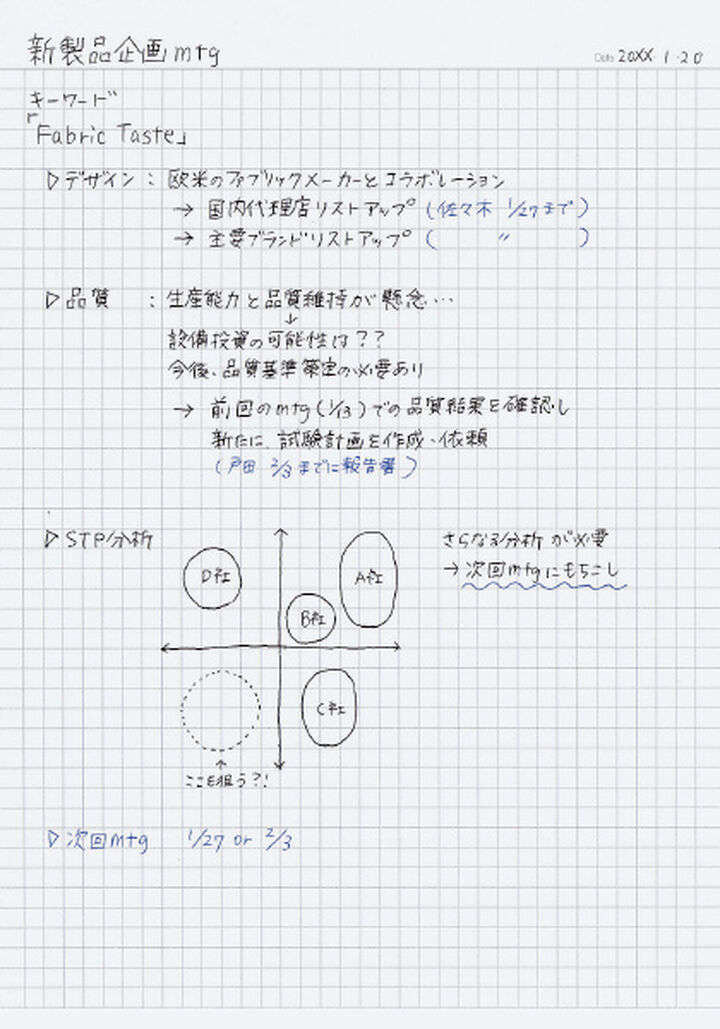 新製品企画mtg
Date 20XX・1・20
キーワード
「Fabric Taste」
▷デザイン：欧米のファブリックメーカーとコラボレーション
→ 国内代理店リストアップ（佐々木 1/27まで）
→ 主要ブランドリストアップ（ 〃 ）
▷品質：生産能力と品質維持が懸念…
↓
設備投資の可能性は？？
今後、品質基準策定の必要あり
→ 前回のmtg（1/13）での品質結果を確認し
新たに試験計画を作成、依頼
（戸田 2/3までに報告書）
▷STP分析
さらなる分析が必要
→次回mtgにもちこし
D社
A社
B社
C社
↑
ここを狙う?!
▷次回mtg 1/27 or 2/3